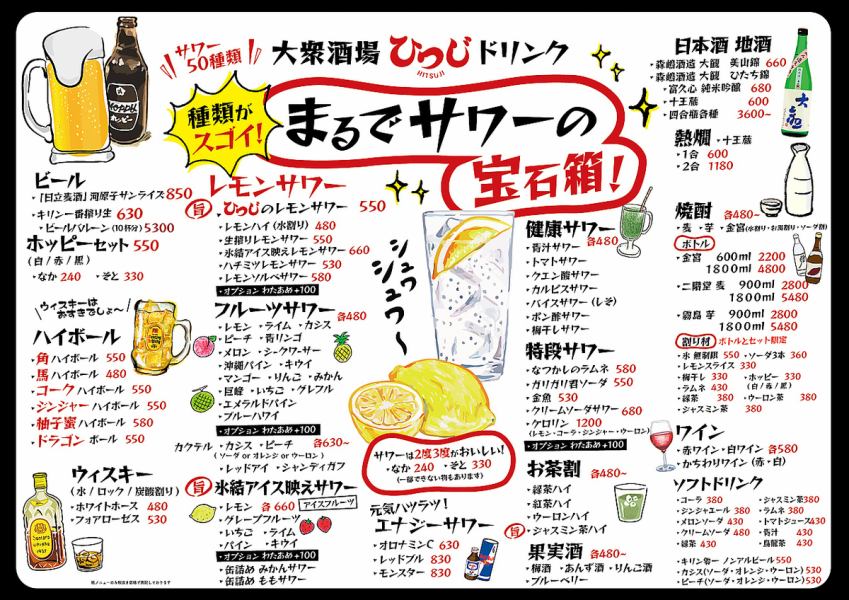 サワー50種類
大衆酒場 ひつじ ドリンク
HITSUJI
種類がスゴイ!
まるでサワーの
宝石箱!
ビール
・「日立麦酒」河原子サンライズ 850
・キリン一番搾り生 630
・ビールバレーン(10杯分) 5300
ホッピーセット 550
(白/赤/黒)
・なか 240 ・そと 330
ウィスキーはおすきでしょ〜
ハイボール
・角ハイボール 550
・馬ハイボール 480
・コークハイボール 550
・ジンジャーハイボール 550
・柚子蜜ハイボール 580
・ドラゴンボール 550
ウィスキー
(水/ロック/炭酸割り)
・ホワイトホース 480
・フォアローゼス 530
レモンサワー
旨
・ひつじのレモンサワー 550
・レモンハイ(水割り) 480
・生搾りレモンサワー 550
・氷結アイス映えレモンサワー 660
・ハチミツレモンサワー 530
・レモンソルベサワー 580
・オプション わたあめ+100
フルーツサワー 各480
・レモン ・ライム ・カシス
・ピーチ ・青リンゴ
・メロン ・シークワーサー
・沖縄パイン ・キウイ
・マンゴー ・りんご ・みかん
・巨峰 ・いちご ・グレフル
・エメラルドパイン
・ブルーハワイ
・オプション わたあめ+100
カクテル ・カシス ・ピーチ 各630〜
(ソーダ or オレンジ or ウーロン)
・レッドアイ ・シャンディガフ
旨
氷結アイス映えサワー
・レモン 各660 アイスフルーツ
・グレープフルーツ
・いちご ・ライム
・パイン ・キウイ
・オプション わたあめ+100
・缶詰め みかんサワー
・缶詰め ももサワー
シュワシュワ〜
サワーは2度3度がおいしい!
・なか 240 ・そと 330
(一部できない物もあります)
元気ハツラツ!
エナジーサワー
・オロナミンC 630
・レッドブル 830
・モンスター 830
健康サワー 各480
・青汁サワー
・トマトサワー
・クエン酸サワー
・カルピスサワー
・バイスサワー(しそ)
・ポン酢サワー
・梅干しサワー
特段サワー
・なつかしのラムネ 580
・ガリガリ君ソーダ 550
・金魚 530
・クリームソーダサワー 680
・ケロリン 1200
(レモン・コーラ・ジンジャー・ウーロン)
・オプション わたあめ+100
お茶割 各480〜
・緑茶ハイ
・紅茶ハイ
・ウーロンハイ
旨
・ジャスミン茶ハイ
果実酒 各480〜
・梅酒 ・あんず酒 ・りんご酒
・ブルーベリー
日本酒 地酒
・森嶋酒造 大觀 美山錦 660
・森嶋酒造 大觀 ひたち錦
・富久心 純米吟醸 680
・十王蔵 600
・四合瓶各種 3600〜
熱燗 ・十王蔵
・1合 600
・2合 1180
焼酎 各480〜
・麦 ・芋 ・金宮(水割り・お湯割り・ソーダ割)
ボトル
・金宮 600ml 2200
1800ml 4800
・二階堂 麦 900ml 2800
1800ml 5480
・霧島 芋 900ml 2800
1800ml 5480
割り材 ボトルとセット限定
・氷 無制限 550 ・ソーダ3本 360
・レモンスライス 330
・梅干し 330 ・ホッピー 330
・ラムネ 430 (白/赤/黒)
・緑茶 380 ・ウーロン茶 380
・ジャスミン茶 380
ワイン
・赤ワイン ・白ワイン 各580
・かちわりワイン(赤・白)
ソフトドリンク
・コーラ 380 ・ジャスミン茶 380
・ジンジャエール 380 ・ラムネ 430
・メロンソーダ 430 ・トマトジュース 430
・クリームソーダ 480 ・青汁 430
・緑茶 430 ・烏龍茶 430
・キリン零一 ノンアルビール 550
・カシス(ソーダ・オレンジ・ウーロン) 530
・ピーチ(ソーダ・オレンジ・ウーロン) 530